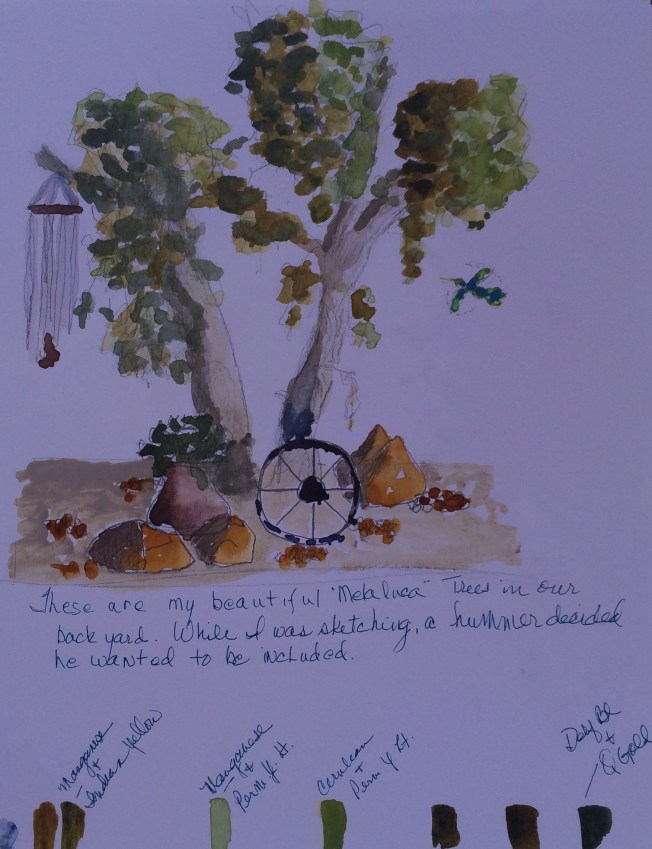 These are my beautiful "Melaluca" Trees in our
back yard. While I was sketching, a hummer decided
he wanted to be included.
Manganese
+
Indian Yellow
Manganese
+
Perm Y. H.
Cerulean
+
Perm Y H.
+
Q Gold